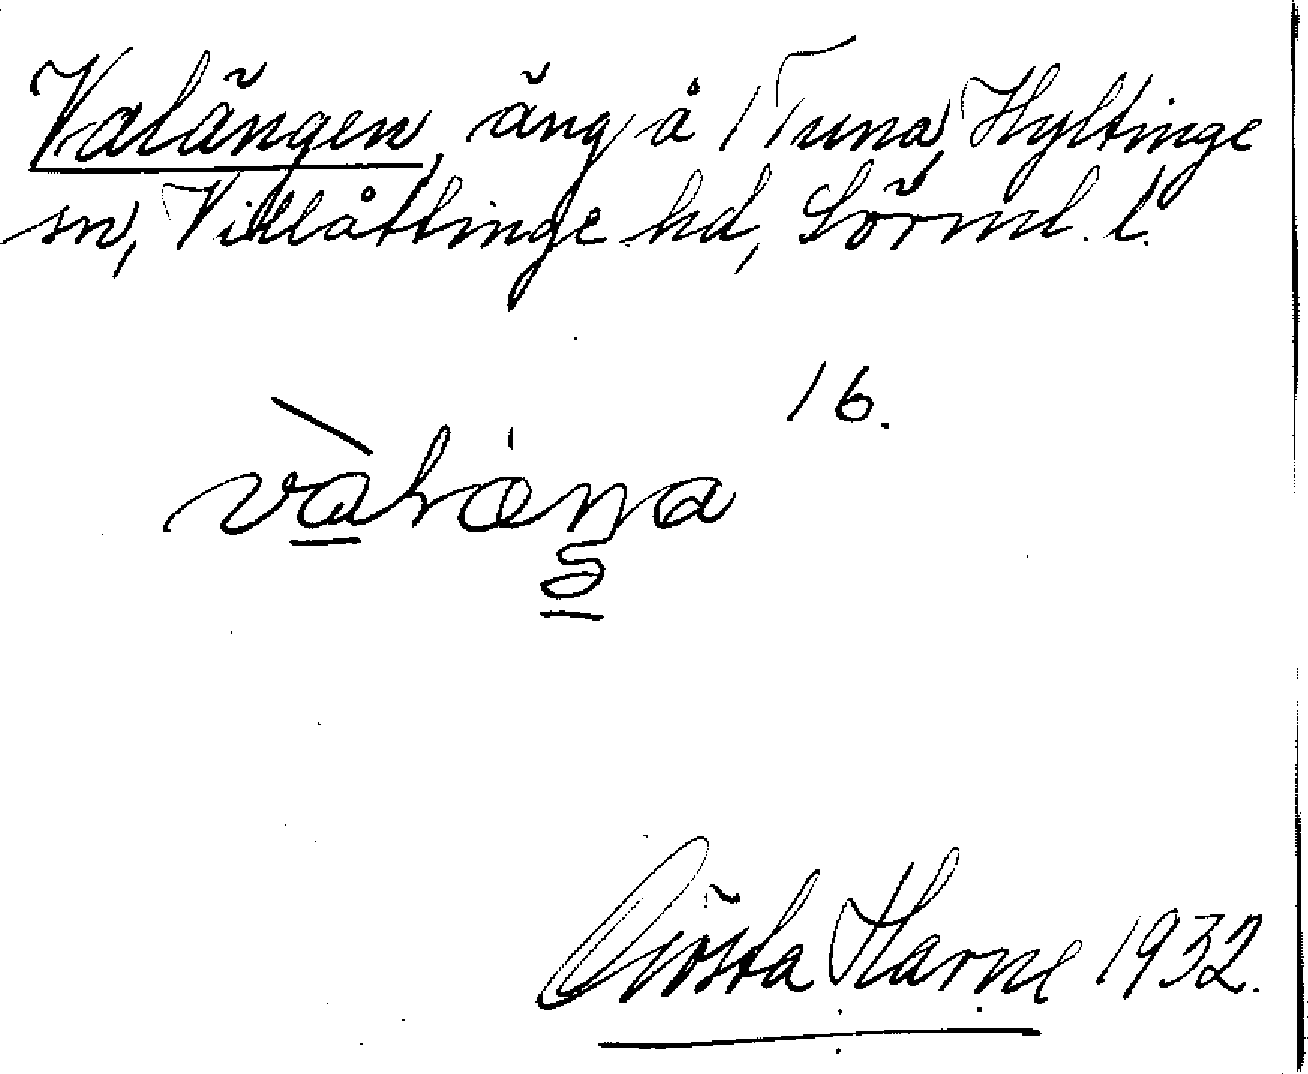 Valängen, äng å 1 Tuna, Hyltinge
sn, Villåttinge hd, Sörml. l.
16.
Gösta Harne 1932.